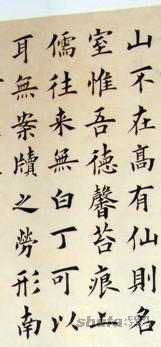 山不在髙有仙則名
室惟吾徳馨苔痕上
儒往来無白丁可以
耳無案牘之勞形南
shufa